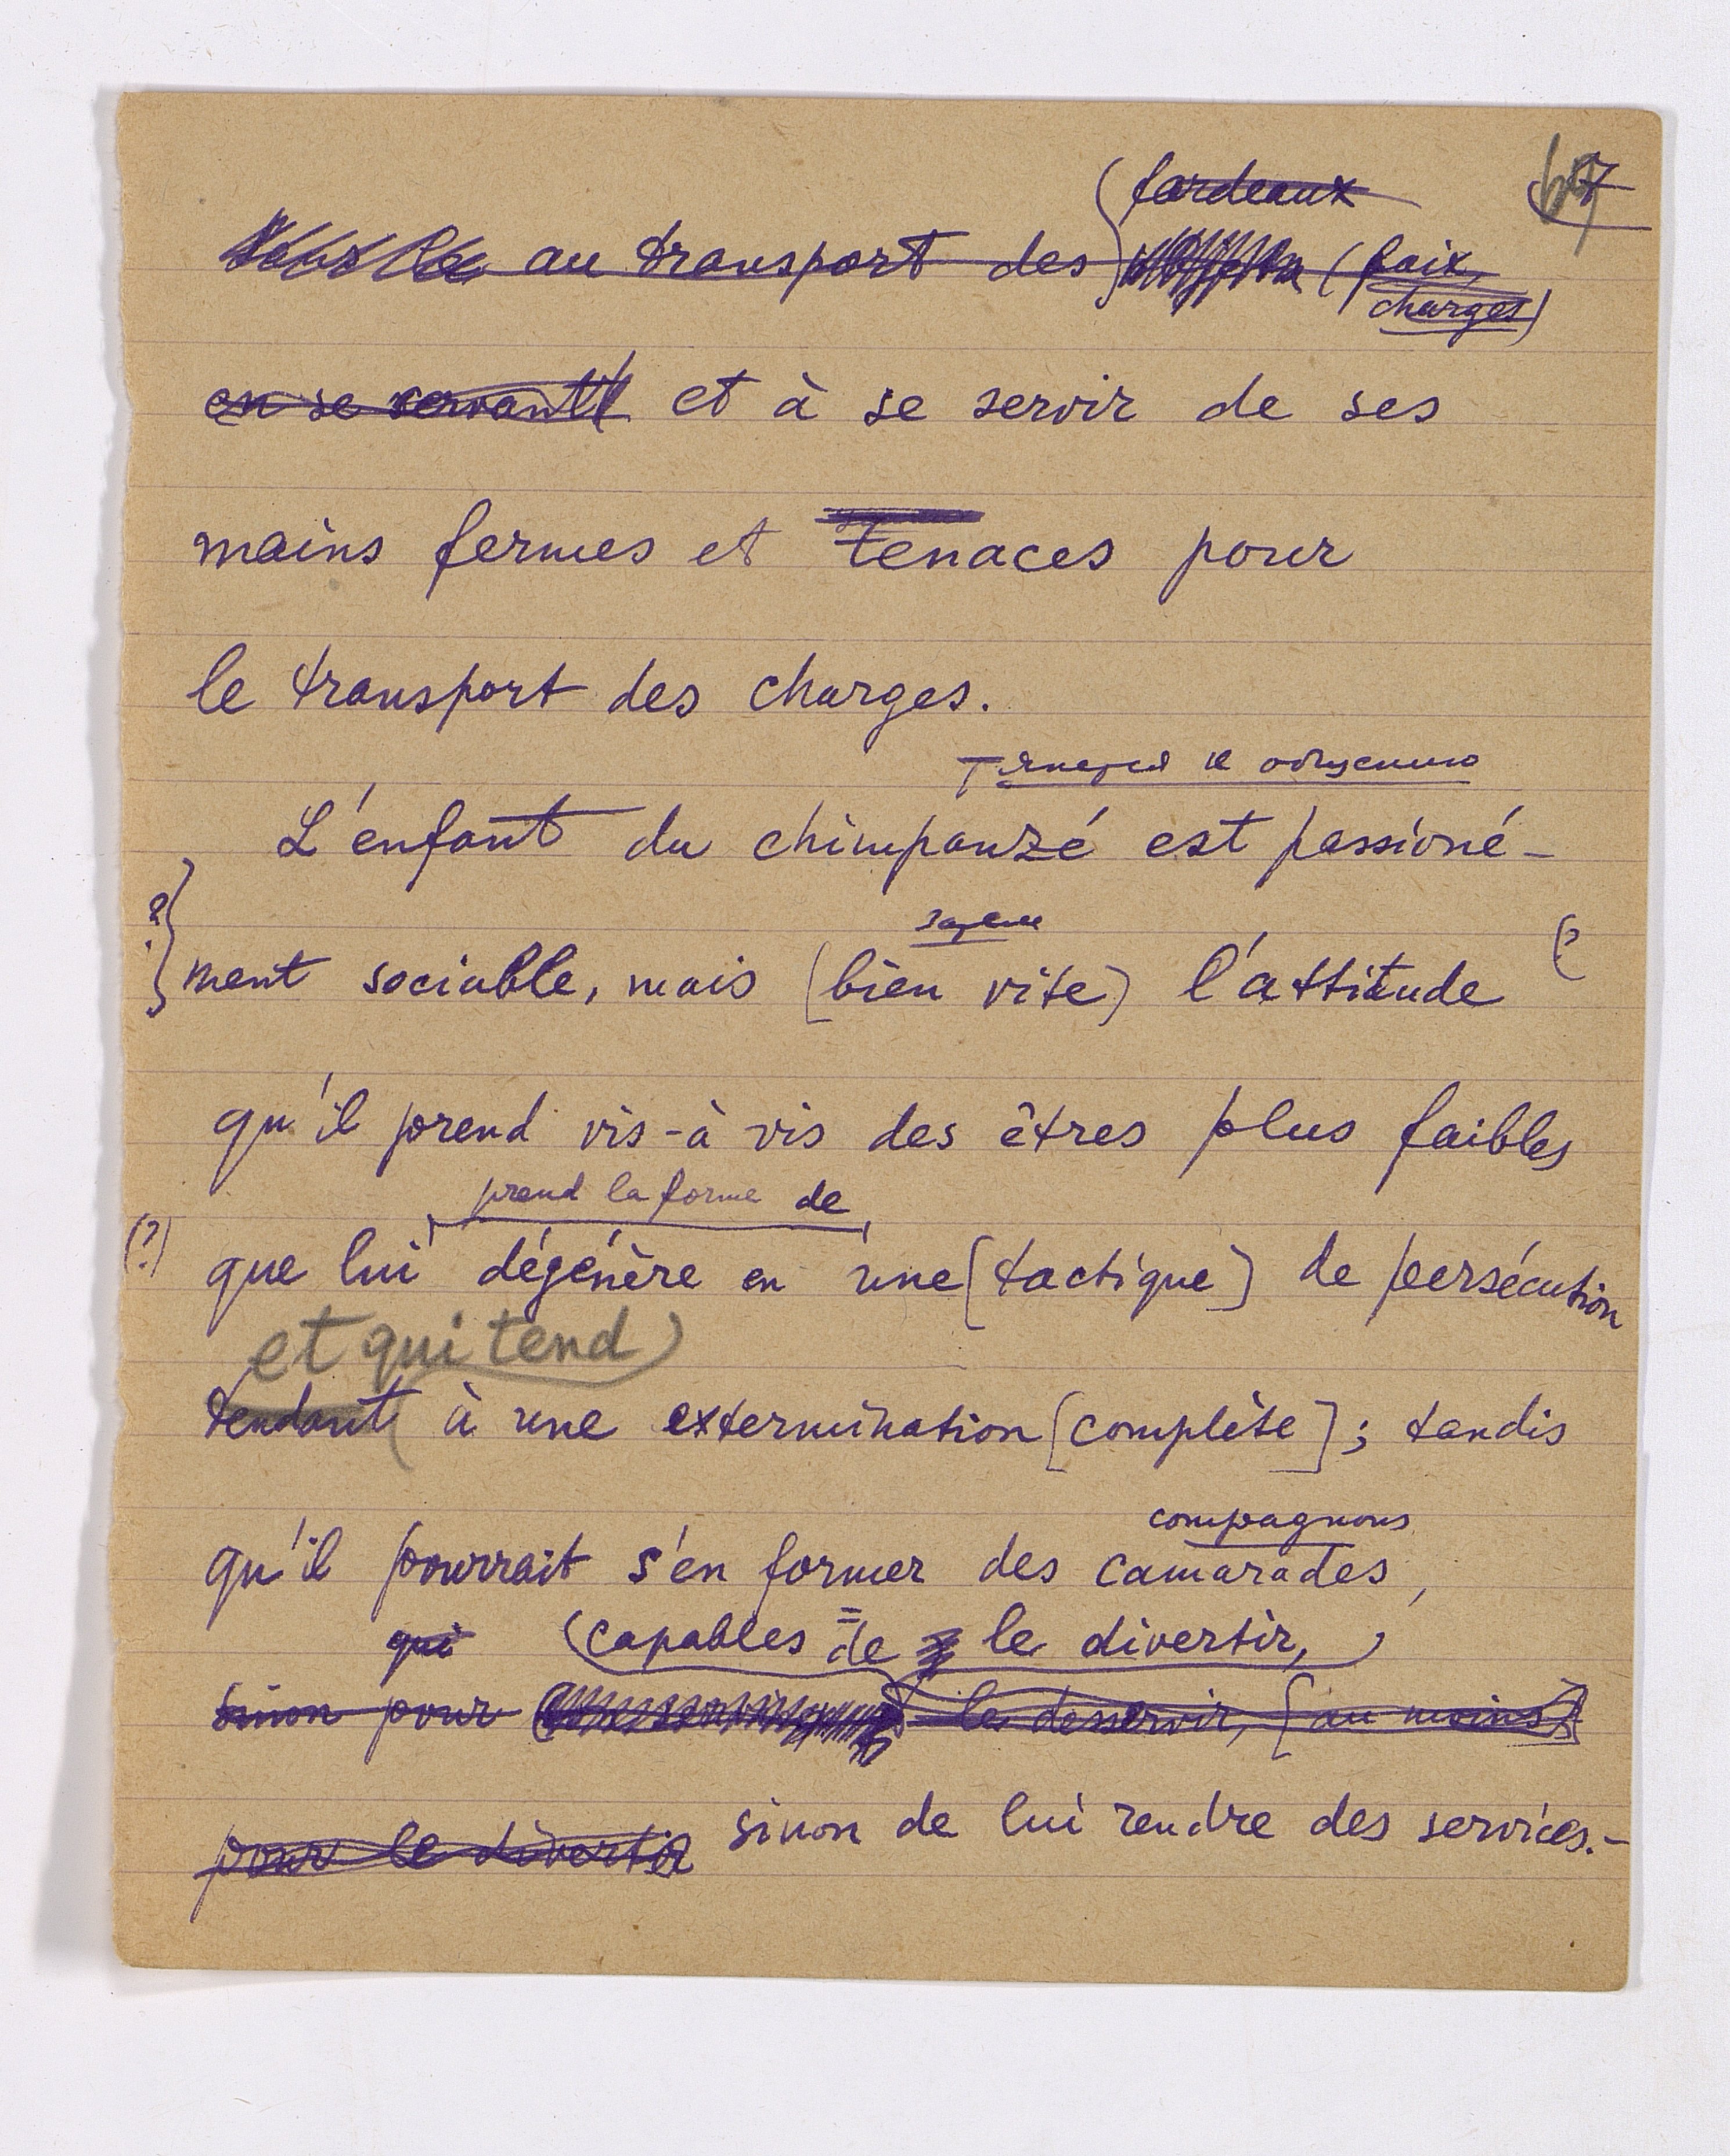 67
fardeaux
au transport des (faix,
charges)
en se servant et à se servir de ses
mains fermes et tenaces pour
le transport des charges.
L'enfant du chimpanzé est passioné-
? ment sociable, mais (bien vite) l'attitude (?
qu'il prend vis-à vis des êtres plus faibles
prend la forme de
(?) que lui dégénère en une [tactique] de persécution
et qui tend
tendant à une extermination [complète]; tandis
compagnons
qu'il pourrait s'en former des camarades,
qui (capables de le divertir,)
sinon pour le desservir, [au moins]
pour le divertir sinon de lui rendre des services.-